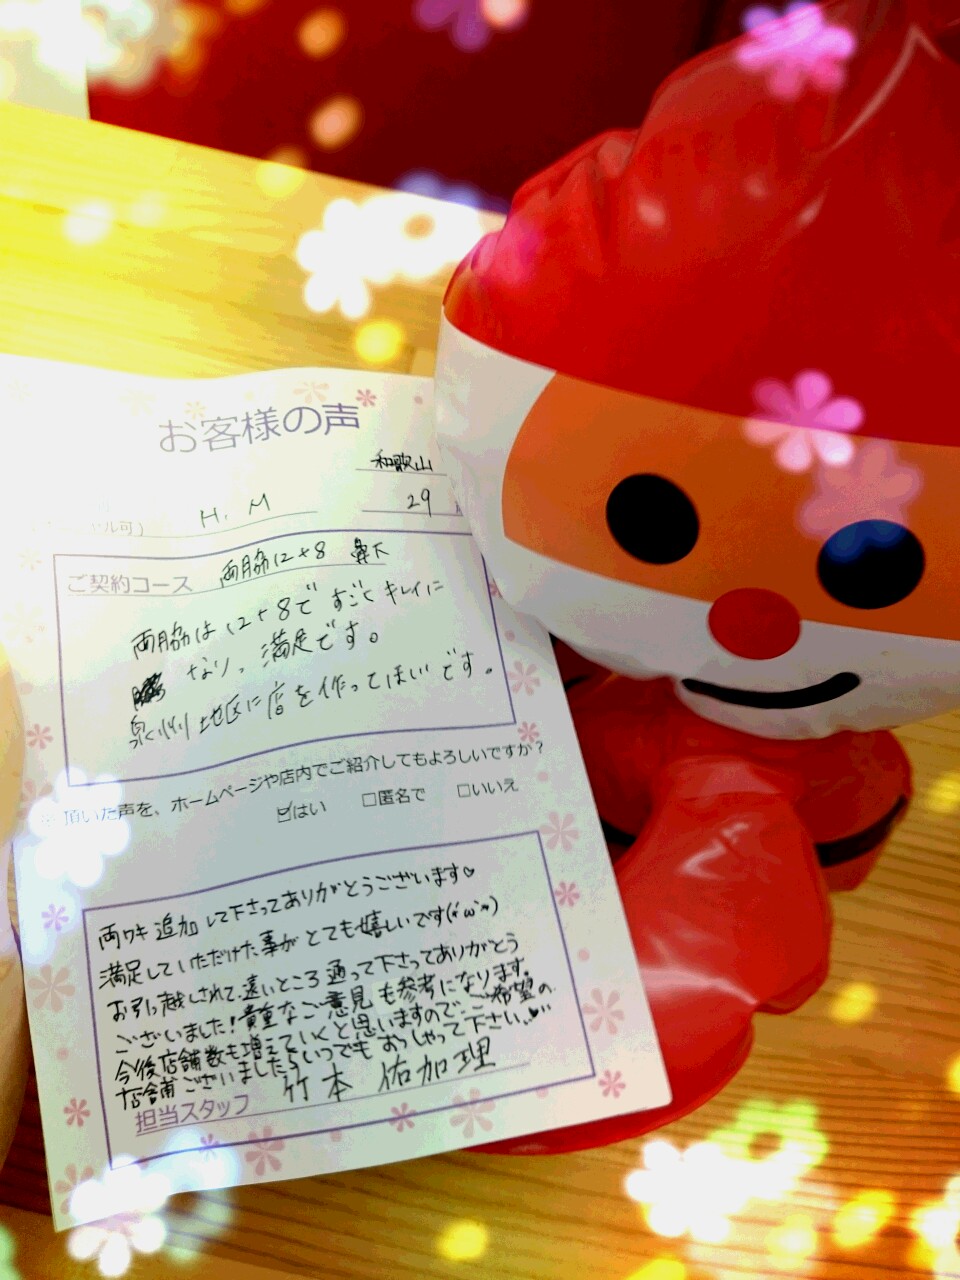 お客様の声
和歌山
ル可)
H. M
29
ご契約コース 両脇12+8 鼻下
両脇は12+8ですごくキレイに
なりっ満足です。
泉州地区に店を作ってほいです。
頂いた声を、ホームページや店内でご紹介してもよろしいですか?
☑はい □匿名で □いいえ
両ワキ追加して下さってありがとうございます♡
満足していただけた事がとても嬉しいです(*´ω`*)
お引っ越しされて、遠いところ通って下さってありがとう
ございました!貴重なご意見も参考になります。
今後店舗数も増えていくと思いますので、ご希望の
店舗ございましたらいつでもおっしゃって下さい
担当スタッフ 竹本 佑加理